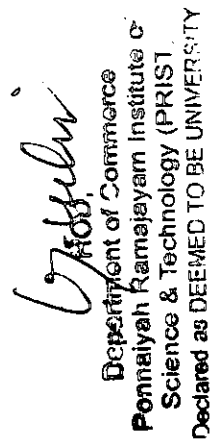 HOD,
Department of Commerce
Ponnaiyah Ramajayam Institute o
Science & Technology (PRIST
Declared as DEEMED TO BE UNIVERSITY